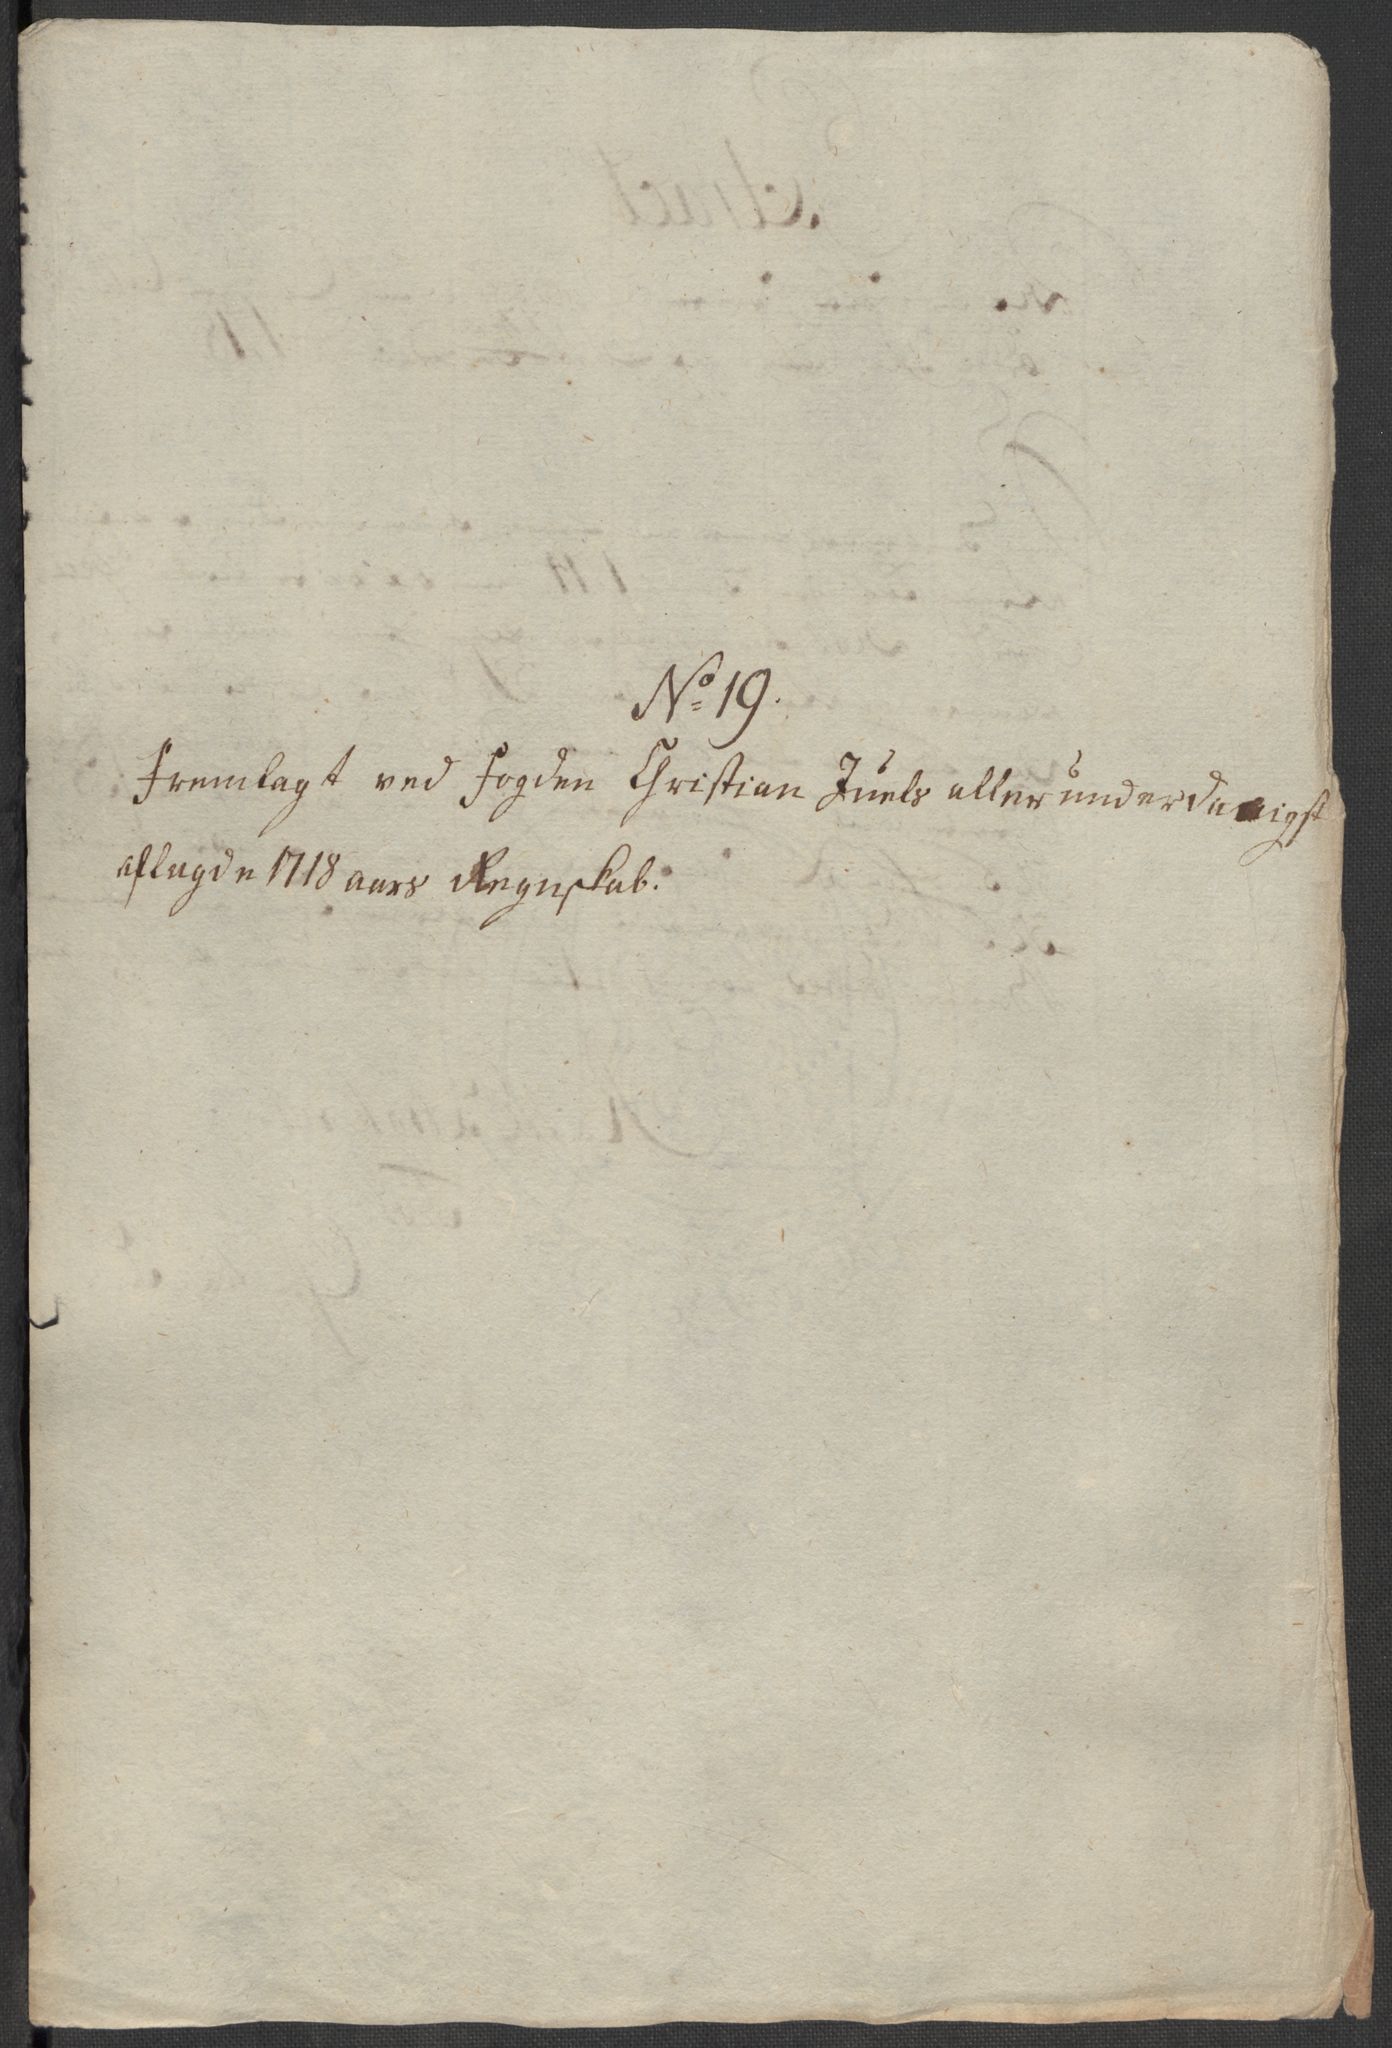 No 19.
Fremlagt ved Fogden Christian Juels allerunderdanigst
aflagde 1718 aars Regnskab.